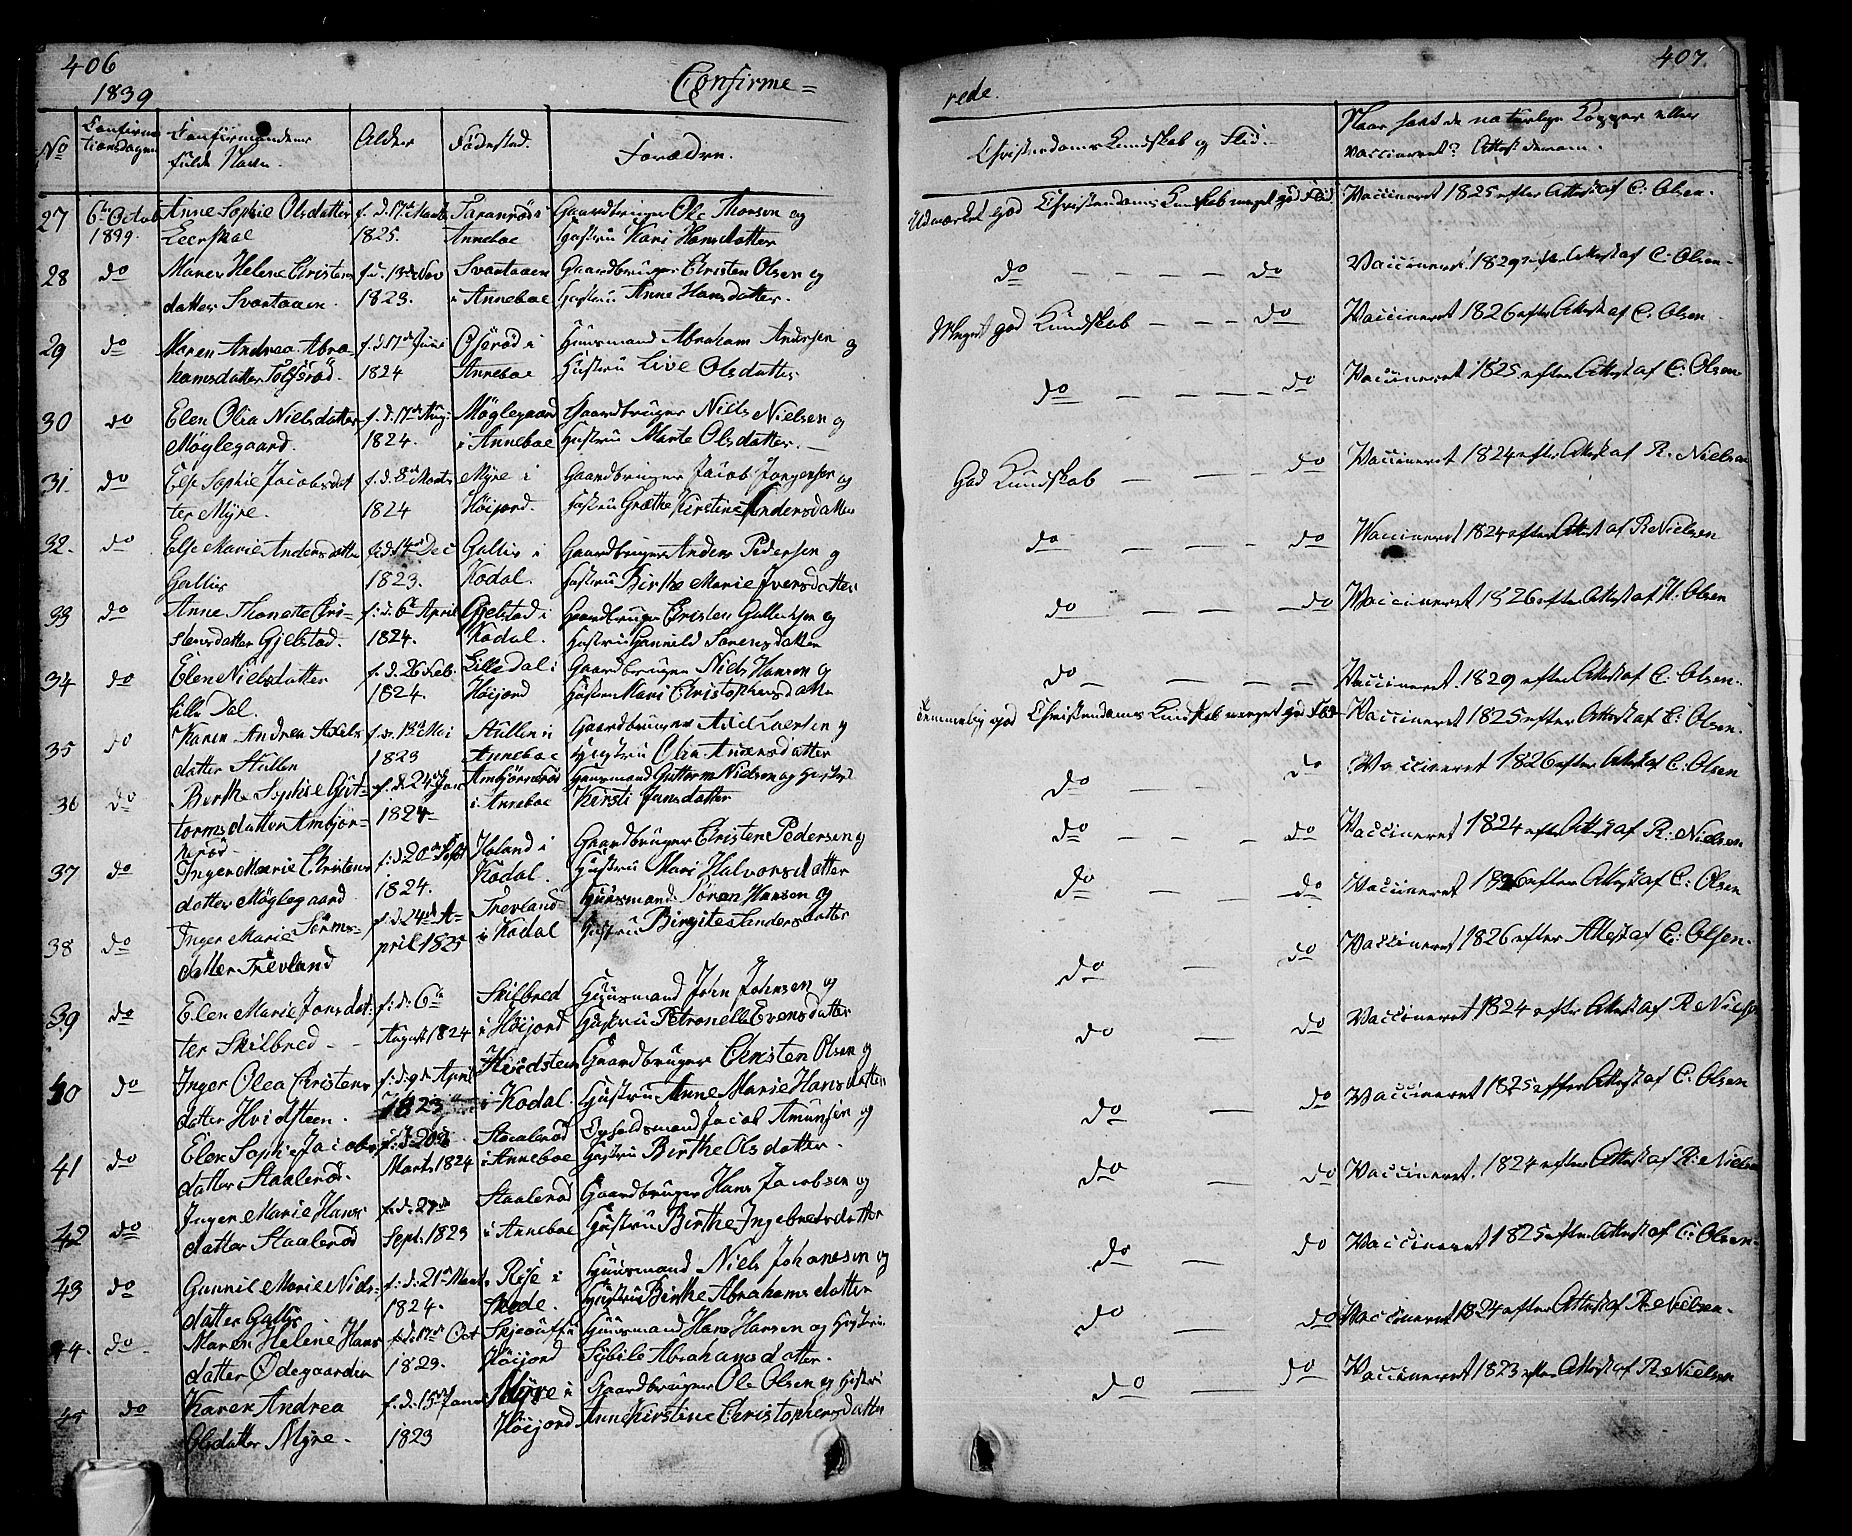 406
1839
Confirme=
No
Confirma
tionsdagen
Confirmandens
fulde Navn.
Alder
Födested.
Forældre.
27
6te Octob
1839.
Anne Sophie Olsdatter
Leerskal
f. d. 17de Marts
1825.
Taranröd i
Anneboe
Gaardbruger Ole Thorsen og
Hustru Kari Hansdatter
28
do
Maren Helene Christens
datter Svartaaen.
f. d. 13de Nov
1823.
Svartaaen
i Anneboe
Gaardbruger Christen Olsen og
Hustru Anne Hansdatter.
29
do
Maren Andrea Abra-
hamsdatter Tolfsröd.
f. d. 17de Juni
1824
i
Anneboe
Huusmand Abraham Andersen og
Hustru Live Olsdatter
30
do
Elen Olia Nielsdatter
Möglegaard.
f. d. 17de Aug:
1824.
Möglegaard
i Anneboe
Gaardbruger Niels Nielsen og
Hustru Marte Olsdatter.
31.
do
Else Sophie Jacobsdat
ter Myre.
f. d. 8de Marts
1824
Myre i
Höijord.
Gaardbruger Jacob Jörgensen og
Hustru Grethe Kirstine Andersdatter
32.
do
Else Marie Andersdatter
Gallis
f. d. 14de Dec
1823.
Gallis i
Kodal.
Gaardbruger Anders Pedersen og
Hustru Birthe Marie Iversdatter
33
do
Anne Thonette Chri-
stensdatter Gjelstad.
f. d. 6te April
1824.
Gjelstad i
Kodal.
Gaardbruger Christen Gulliksen og
Hustru Gunnild Sörensdatter
34
do
Elen Nielsdatter
Lille Dal.
f. d. 26 Feb.
1824.
Lille Dal i
Höijord
Gaardbruger Niels Hansen og
Hustru Mari Christophersdatter
35
do
Karen Andrea Axels
datter Stullen
f. d. Mai
1823
Stullen i
Anneboe
Gaardbruger Axel Larsen og
Hustru Olia Andersdatter
36
do
Berthe Sophie Gut-
tormsdatter Ambjör-
neröd
f. d. 24de Jan
1824
Ambjörneröd
i Anneboe
Huusmand Guttorm Nielsen og Hustru
Kirsti Jansdatter
37
do
Inger Marie Christens
datter Möglegaard
f. d. 20de Sept
1824.
Holand i
Kodal.
Gaardbruger Christen Pedersen og
Hustru Mari Halvorsdatter
38
do
Inger Marie Sörens-
datter Trevland
f. d. 24de A-
pril 1825
Trevland
i Kodal
Huusmand Sören Hansen og
Hustru Birgite Andersdatter
39
do
Elen Marie Jonsdat:
ter Skilbred -
f. d. 6te
August 1824
Skilbred
i Höijord
Huusmand John Johnsen og
Hustru Petronelle Evensdatter
40
do
Inger Olea Christens
datter Hvidsteen.
f. d. 9de April
1823
Hvidsteen
i Kodal.
Gaardbruger Christen Olsen og
Hustru Anne Marie Hansdatter
41
do
Elen Sophie Jacobs
datter Staaleröd.
f. d. 20de
Marts 1824
Staaleröd
i Anneboe
Opholdsmand Jacob Amunsen og
Hustru Birthe Olsdatter.
42
do
Inger Marie Hans
datter Staaleröd
f. d. 27de
Sept. 1823
Staaleröd
i Anneboe
Gaardbruger Hans Jacobsen og
Hustru Birthe Ingebretsdatter
43
do
Gunnil Marie Niels-
datter Gallis
f. d. 21de Marts
1824.
Röse i
Skode.
Huusmand Niels Johanesen og
Hustru Birthe Abrahamsdatter
44.
do
Maren Helene Hans
datter Ödegaarden
f. d. 17de Oct
1823.
Höijord
Huusmand Hans Hansen og Hustru
Sybile Abrahamsdatter.
45
do
Karen Andrea
Olsdatter Myre.
f. d. 15de Januar
1823
Myre i
Höijord
Gaardbruger Ole Olsen og Hustru
Anne Kirstine Christophersdatter
407.
rede.
Christendoms Kundskab og Flid.
Naar havt de naturlige Kopper eller
vaccineret? Attest derom.
Udmærket god Christendoms Kundskab meget god Flid
Vaccineret 1825 efter Attest af C. Olsen.
do - - - - do
Vaccineret 1829 efter Attest af C. Olsen-
Meget god Kundskab - - - do
Vaccineret 1826 efter Attest af C. Olsen
do - - - - do
Vaccineret 1825 efter Attest af C: Olsen
God Kundskab - - - do
Vaccineret 1824 efter Attest af R. Nielsen
do - - - do
Vaccineret 1824 efter Attest af R Nielsen
do - - - do
Vaccineret 1826 efter Attest af H. Olsen
do - - - -
Vaccineret. 1829 efter Attest af C. Olsen.
Temmelig god Christendoms Kundskab meget god Flid
Vaccineret 1825 efter Attest af C: Olsen.
do - - do
Vaccineret 1826 efter Attest af C. Olsen
do - - do
Vaccineret 1824 efter Attest af R: Nielsen
do - - do
Vaccineret 1826 efter Attest af C: Olsen
do - do
Vaccineret 1826 efter Attest af C: Olsen.
do - do
Vaccineret 1824 efter Attest af R Niels
do - do
Vaccineret 1825 efter Attest af C. Olsen
do - do
Vaccineret. 1824 efter Attest af R: Nielsen
do - do
Vaccineret 1825 efter Attest af C: Olsen.
do - do
Vaccineret 1824 efter Attest af R Nielsen.
do - do
Vaccineret 1823 efter Attest af R. Nielsen